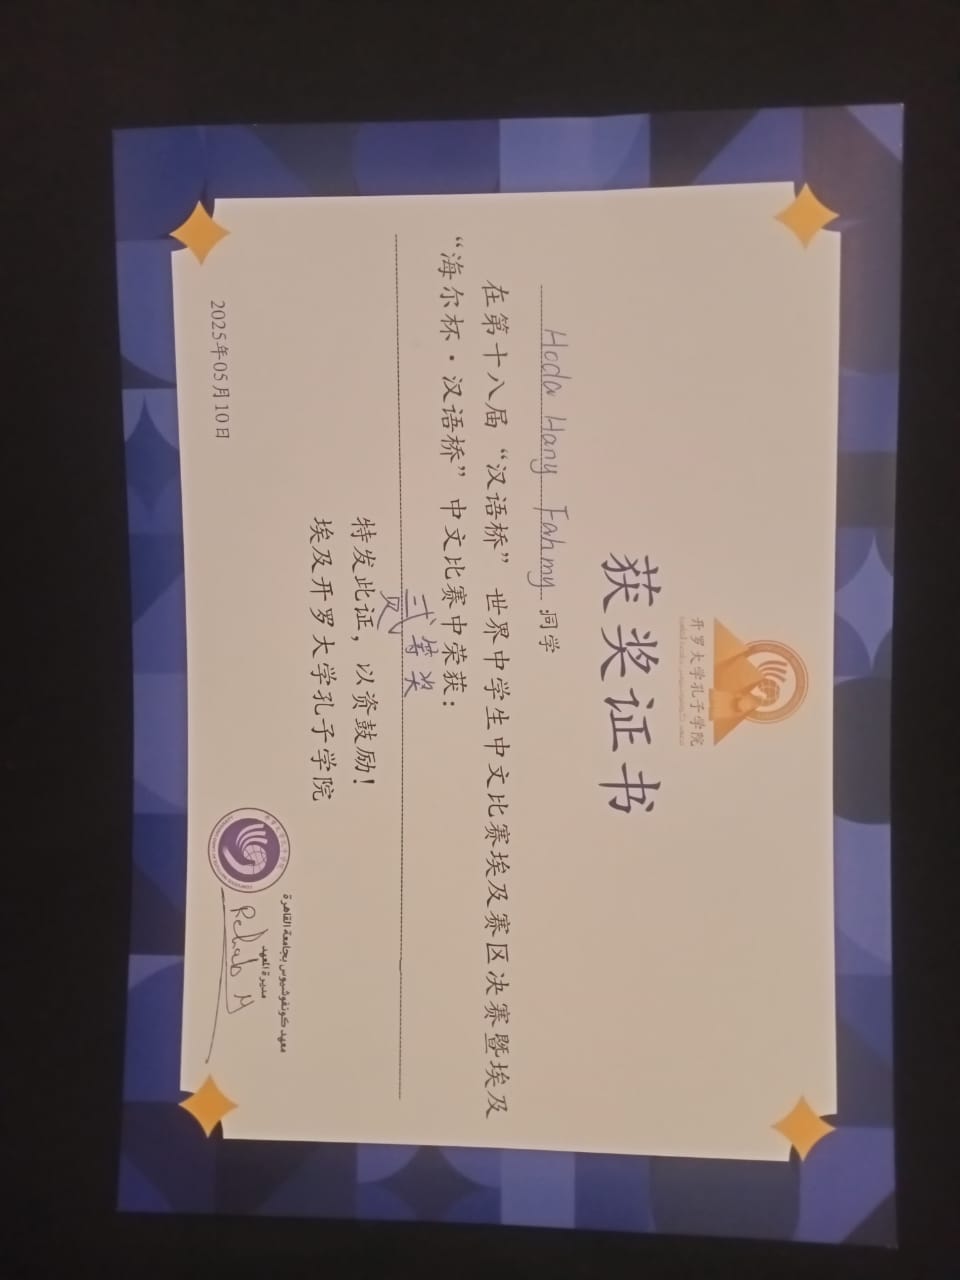 开罗大学孔子学院
获奖证书
Hoda Hany Fahmy 同学
在第十八届“汉语桥”世界中学生中文比赛埃及赛区决赛暨埃及
“海尔杯·汉语桥”中文比赛中荣获：
贰等奖
特发此证，以资鼓励！
埃及开罗大学孔子学院
2025年05月10日
معهد كونفوشيوس بجامعة القاهرة
مديرة المعهد
Rehab M